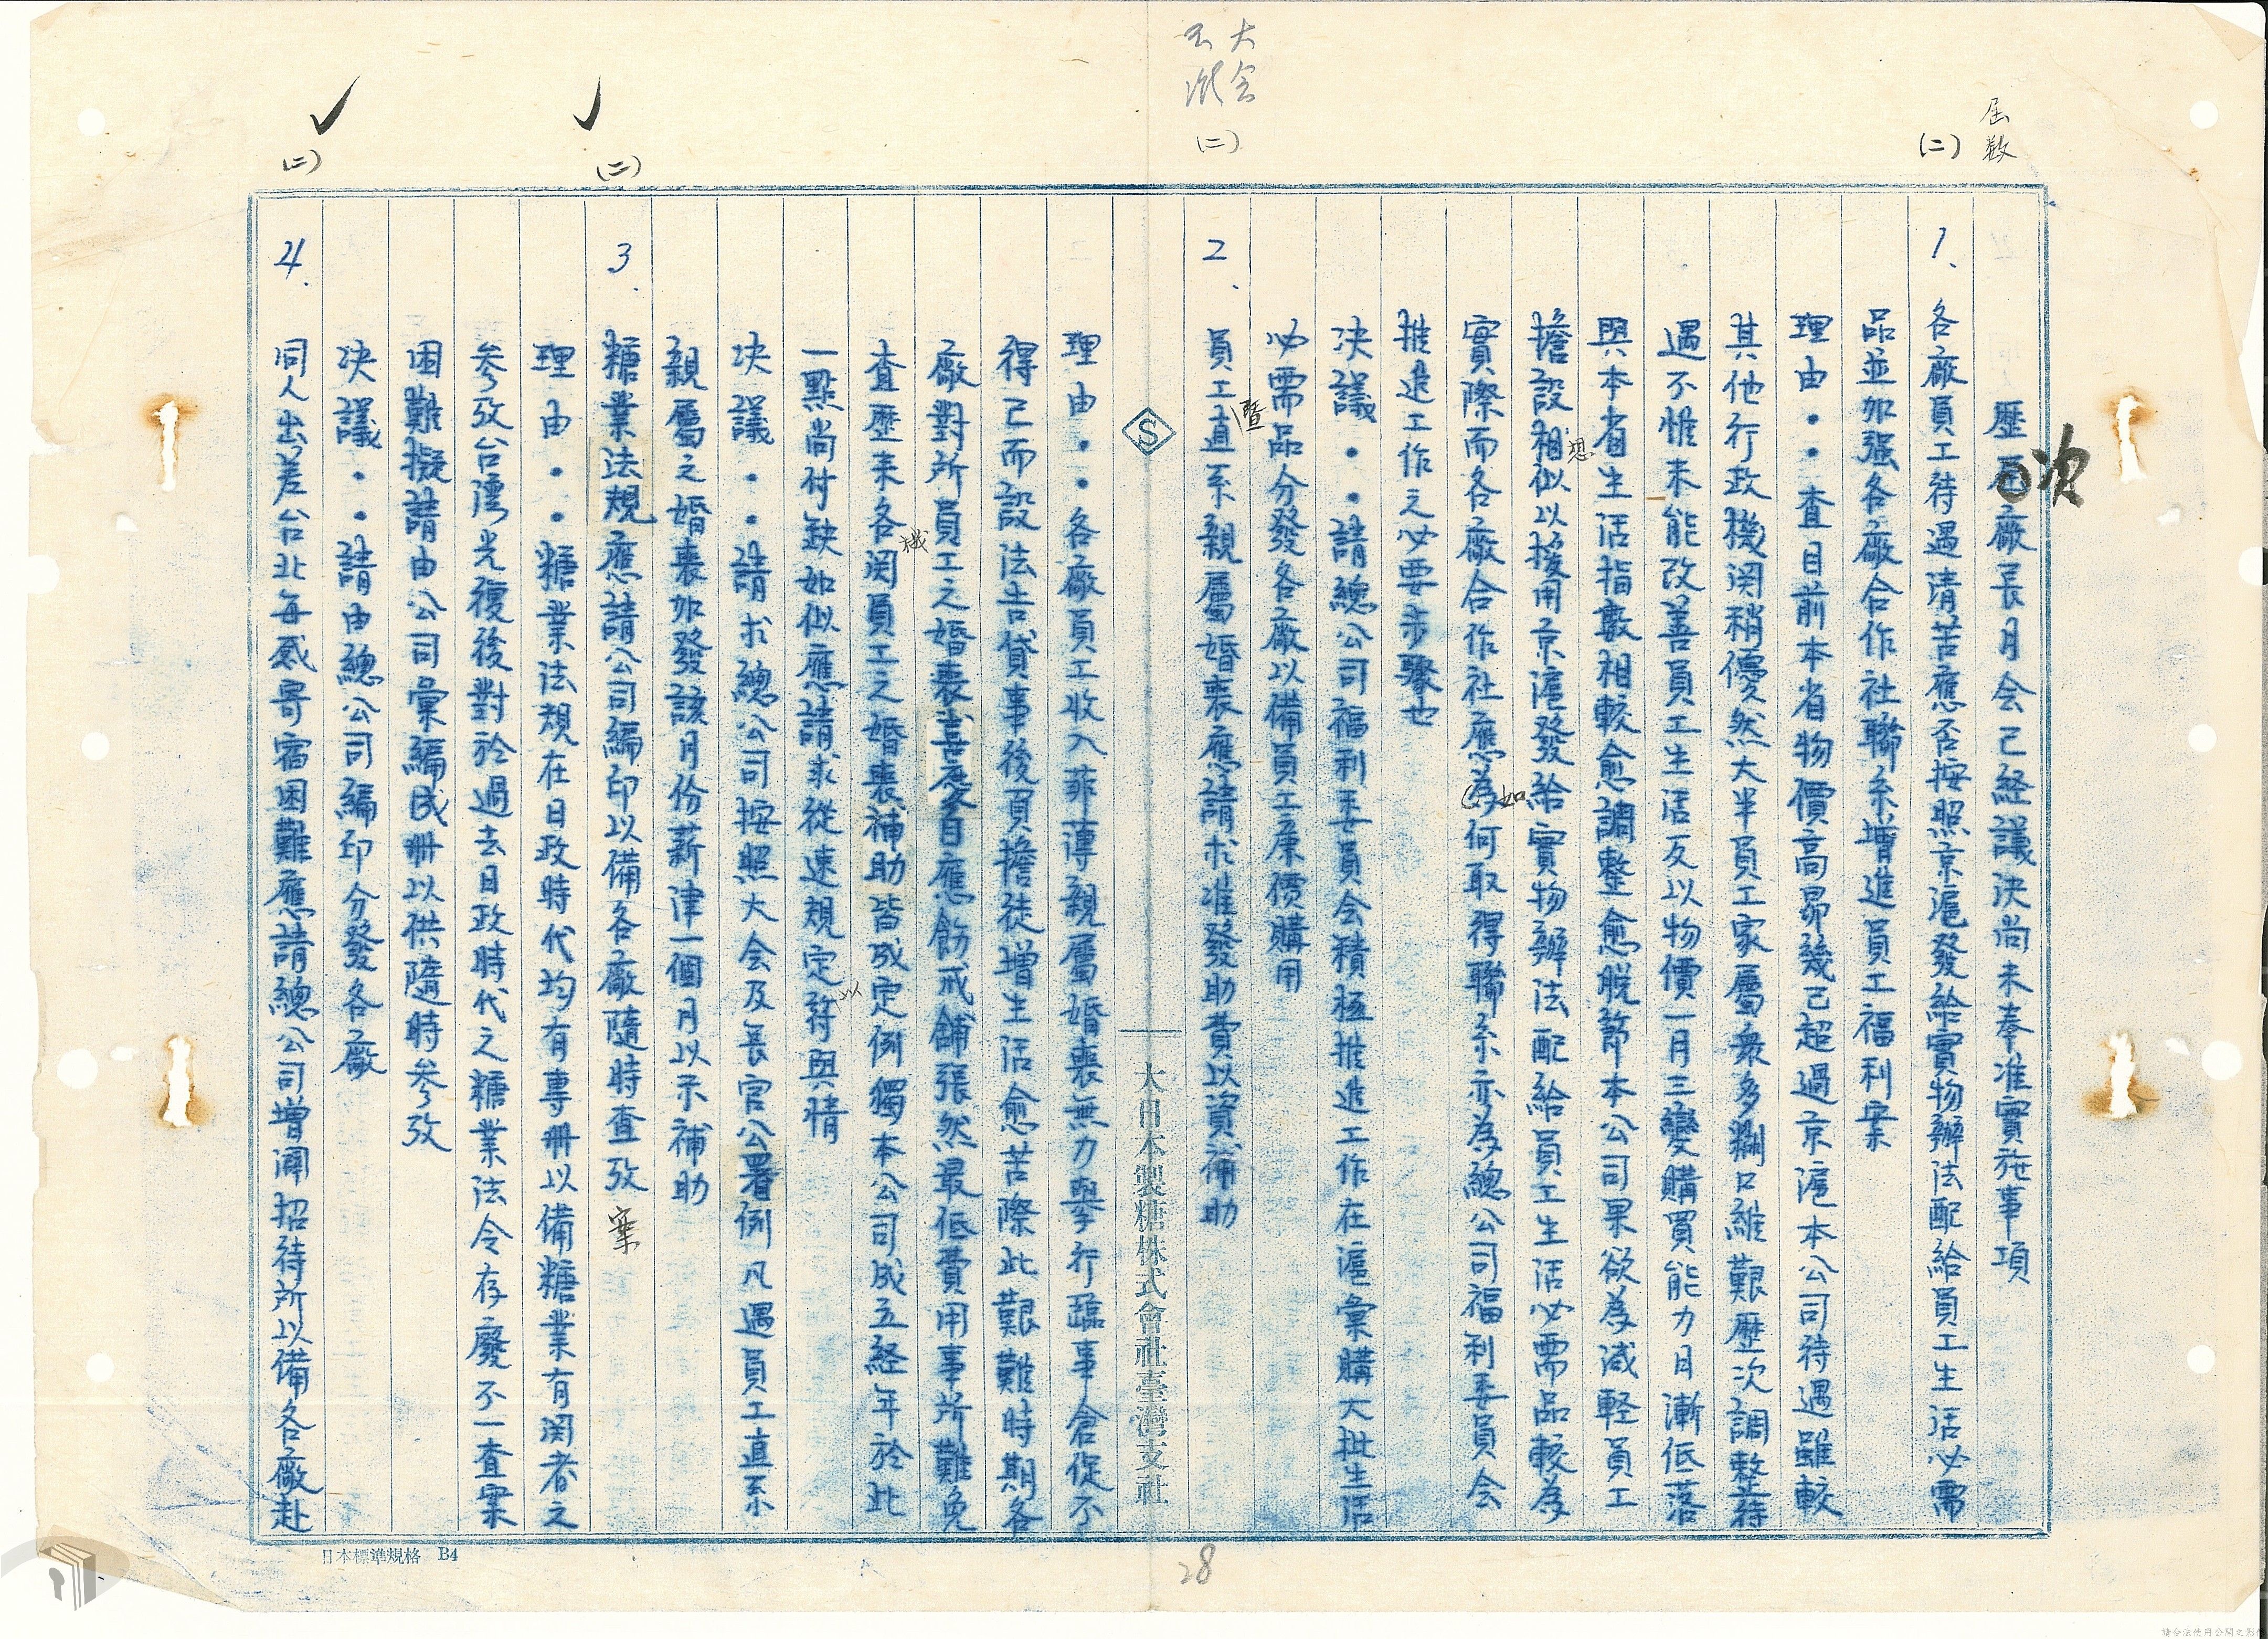 屆數
(二)
大会
(二)
(二)
(二)
歷次廠長月会已経議決尚未奉准實施事項
1、各廠員工待遇清苦應否按照京滬發給實物辦法配給員工生活必需
品並加强各廠合作社聯系增進員工福利案
理由：查目前本省物價高昻幾已超過京滬本公司待遇雖較
其他行政機関稍優然大半員工家屬衆多糊口維艱歷次調整待
遇不惟未能改善員工生活反以物價一月三變購買能力日漸低落
與本省生活指數相較愈調整愈脫節本公司果欲為減軽員工
擔設想似以援用京滬發給實物辦法配給員工生活必需品較為
實際而各廠合作社應如何取得聯系亦為總公司福利委員会
推進工作之必要步驟也
決議：請總公司福利委員会積極推進工作在滬彙購大批生活
必需品分發各廠以備員工廉價購用
2、員工暨直系親屬婚喪應請求准發助費以資補助
大日本製糖株式會社臺灣支社
理由：各廠員工收入菲薄親屬婚喪無力舉行臨事倉促不
得已而設法告貸事後負擔徒增生活愈苦際此艱難時期各
廠對所員工之婚喪喜慶自應飭戒鋪張然最低費用事所難免
查歷来各機関員工之婚喪補助皆成定例獨本公司成立経年於此
一點尚付缺如似應請求從速規定以符輿情
决議：請求總公司按照大会及長官公署例凡遇員工直系
親屬之婚喪加發該月份薪津一個月以示補助
3、糖業法規應請公司編印以備各廠隨時查攷案
理由：糖業法規在日政時代均有專冊以備糖業有関者之
参攷台灣光復後對於過去日政時代之糖業法令存廢不一查案
困難擬請由公司彙編成冊以供隨時参攷
決議：請由總公司編印分發各廠
4、同人出差台北每感寄宿困難應請總公司增闢招待所以備各廠赴
日本標準規格 B4
28
請合法使用公開之影像